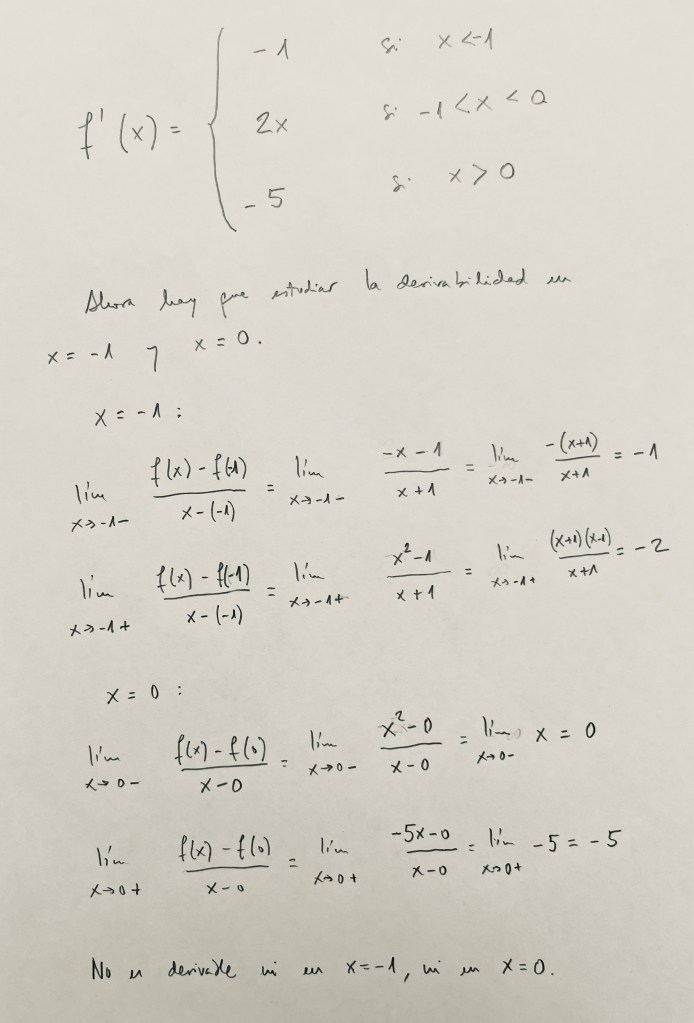 -1 si x<-1
f'(x)= 2x si -1<x<0
-5 si x>0
Ahora hay que estudiar la derivabilidad en
x=-1 y x=0.
x=-1:
lím x→-1- f(x)-f(-1) / x-(-1) = lím x→-1- -x-1 / x+1 = lím x→-1- -(x+1) / x+1 = -1
lím x→-1+ f(x)-f(-1) / x-(-1) = lím x→-1+ x²-1 / x+1 = lím x→-1+ (x+1)(x-1) / x+1 = -2
x=0:
lím x→0- f(x)-f(0) / x-0 = lím x→0- x²-0 / x-0 = lím x→0- x = 0
lím x→0+ f(x)-f(0) / x-0 = lím x→0+ -5x-0 / x-0 = lím x→0+ -5 = -5
No es derivable ni en x=-1, ni en x=0.